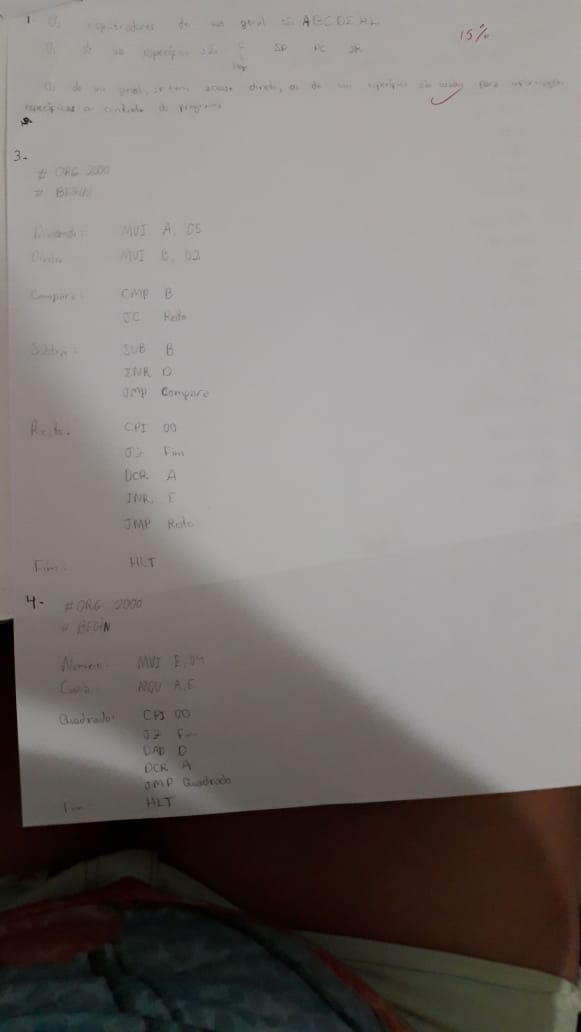 1 Os registradores de uso geral são A B C D E H L
15%
Os de uso específico são F SP PC
Os de uso geral, se tem acesso direto, os de uso específico são usados para informações
específicas ou controle do programa
3-
# ORG 2000
# BEGIN
Dividendo: MVI A, 05
Divisor: MVI B, 02
Compara: CMP B
JC Resto
Subtrai: SUB B
INR D
JMP Compara
Resto: CPI 00
JZ Fim
DCR A
INR E
JMP Resto
Fim: HLT
4- # ORG 2000
# BEGIN
Numero: MVI E, 04
Copia: MOV A, E
Quadrado: CPI 00
JZ Fim
DAD D
DCR A
JMP Quadrado
Fim: HLT